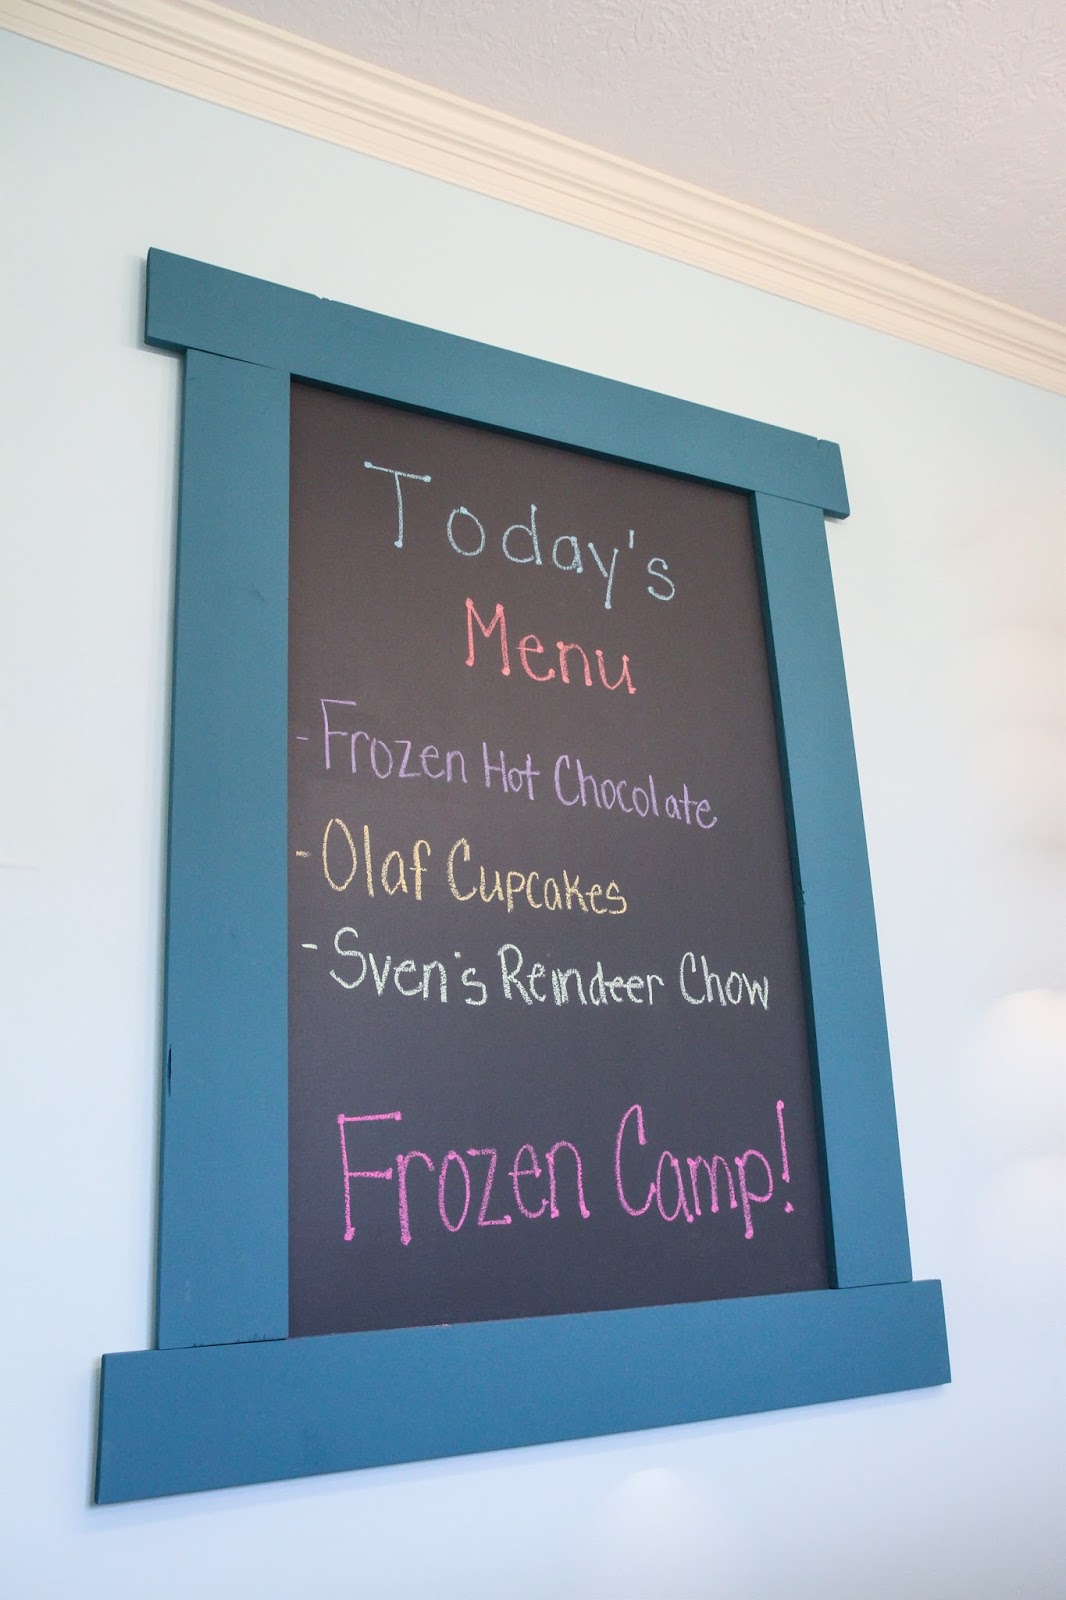 Today's
Menu
- Frozen Hot Chocolate
- Olaf Cupcakes
- Sven's Reindeer Chow
Frozen Camp!